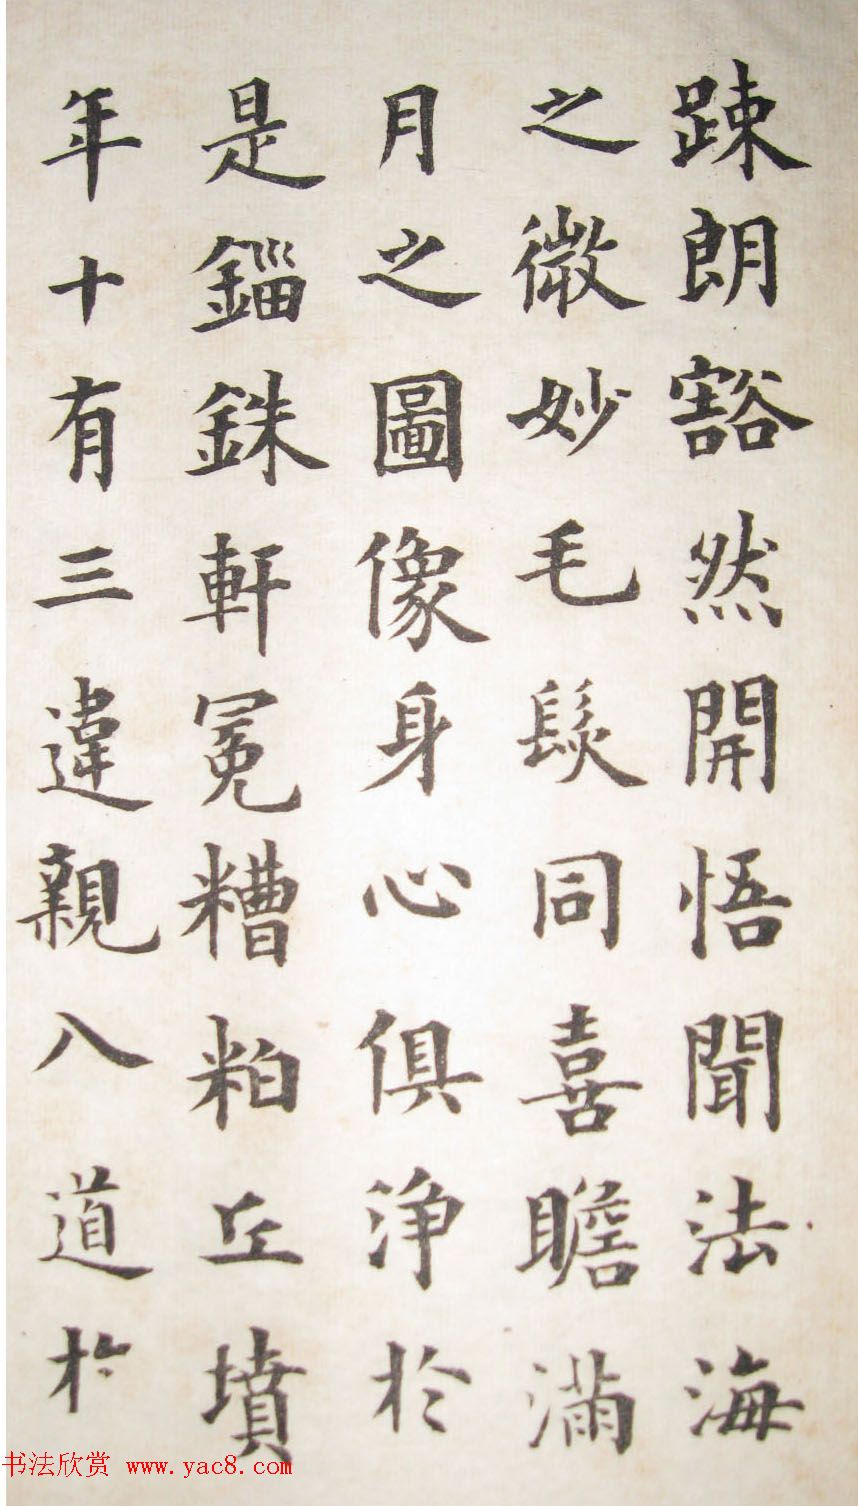 踈朗豁然開悟聞法海
之微妙毛髮同喜瞻滿
月之圖像身心俱淨於
是錙銖軒冕糟粕丘墳
年十有三違親入道於
书法欣赏 www.yac8.com